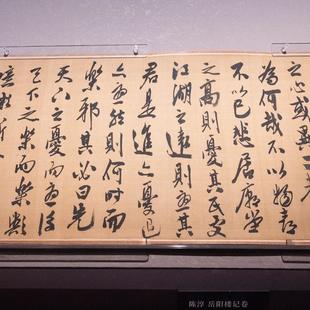 之心或異二者
為何哉不以物喜
不以己悲居廟堂
之高則憂其民處
江湖之遠則憂其
君是進亦憂退
亦憂然則何時而
樂邪其必曰先
天下之憂而憂後
天下之樂而樂歟
噫微斯
陈淳 岳阳楼记卷